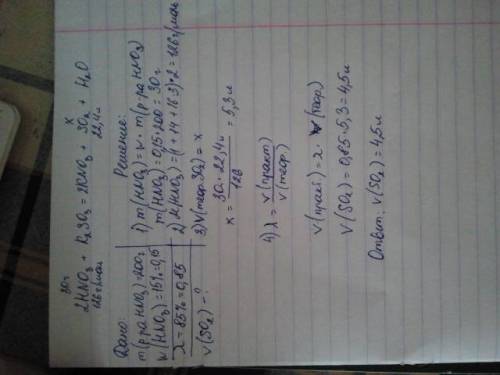 30г x
2HNO₃ + K₂SO₃ = 2KNO₃ + SO₂ + H₂O
126 г/моль 22,4л
Дано:
m(р.ра HNO₃)=200г
w(HNO₃)=15%=0,15
λ=85%=0,85
V(SO₂)-?
Решение:
1) m(HNO₃)=w·m(р.ра HNO₃)
m(HNO₃)=0,15·200=30г
2) M(HNO₃)=(1+14+16·3)·2=126г/моль
3) V(теор.SO₂)=x
x = 30·22,4л / 126 = 5,3л
4) λ = V(практ) / V(теор.)
V(практ.)=λ·V(теор)
V(SO₂)=0,85·5,3=4,5л
Ответ: V(SO₂)=4,5л